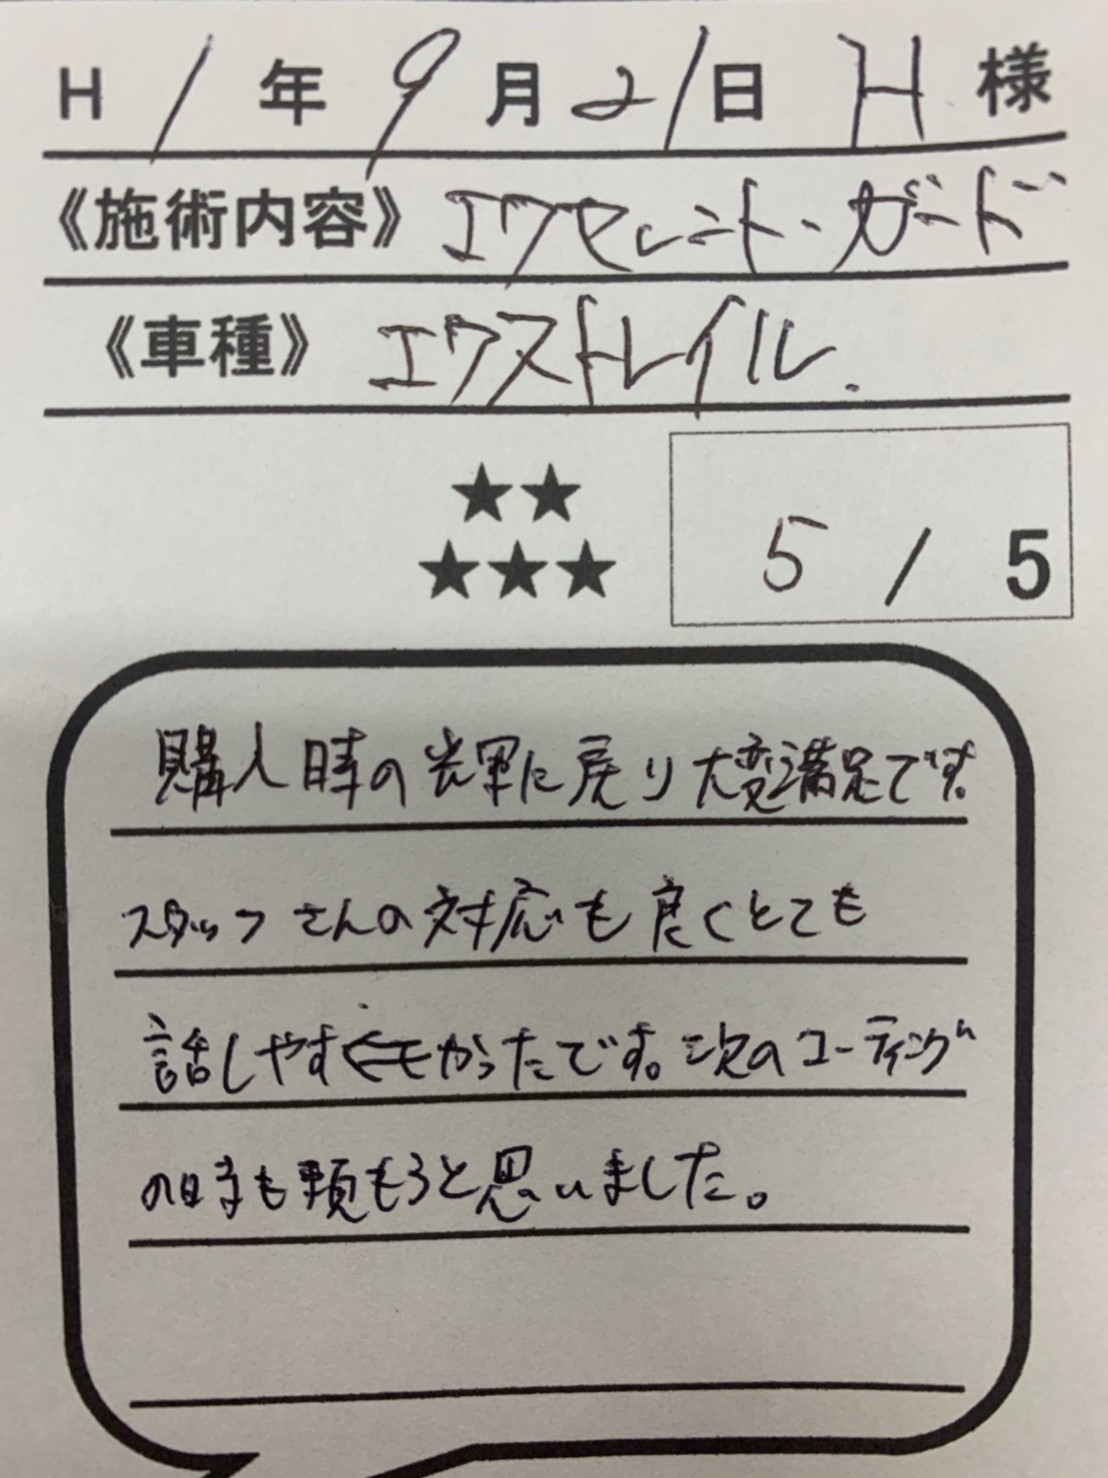 H 1 年 9 月 21 日 H 様
《施術内容》 エクセレント・ガード
《車種》 エクストレイル.
★★
★★★
5 / 5
購入時の光輝に戻り大変満足です。
スタッフさんの対応も良くとても
話しやすかったです。次のコーティング
の時も頼もうと思いました。